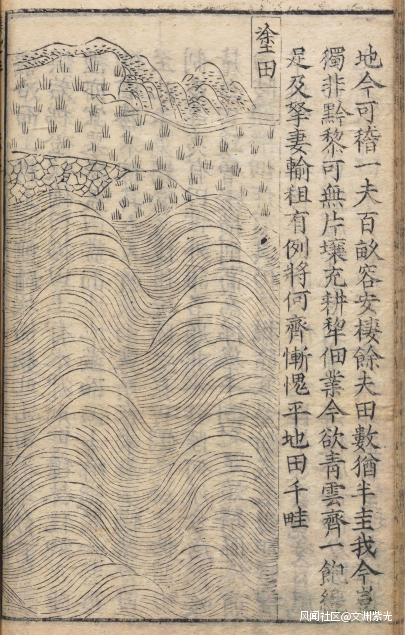 地今可稽一夫百畝容安棲餘夫田數猶半圭我今豈
獨非黔黎可無片壤充耕犂佃業今欲青雲齊一飽
足及孥妻輸租有例將何齊慚愧平地田千畦
塗田
风闻社区@文洲紫光